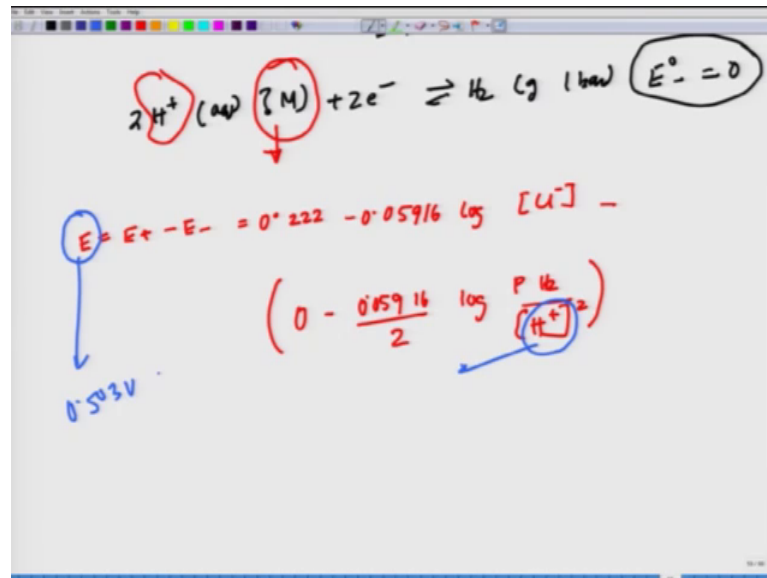 2H⁺ (aq) (? M) + 2e⁻ ⇌ H₂ (g 1 bar) E°₋ = 0
E = E+ - E- = 0.222 - 0.05916 log [Cl⁻] -
(0 - 0.05916/2 log P H₂/[H⁺]²)
0.503V